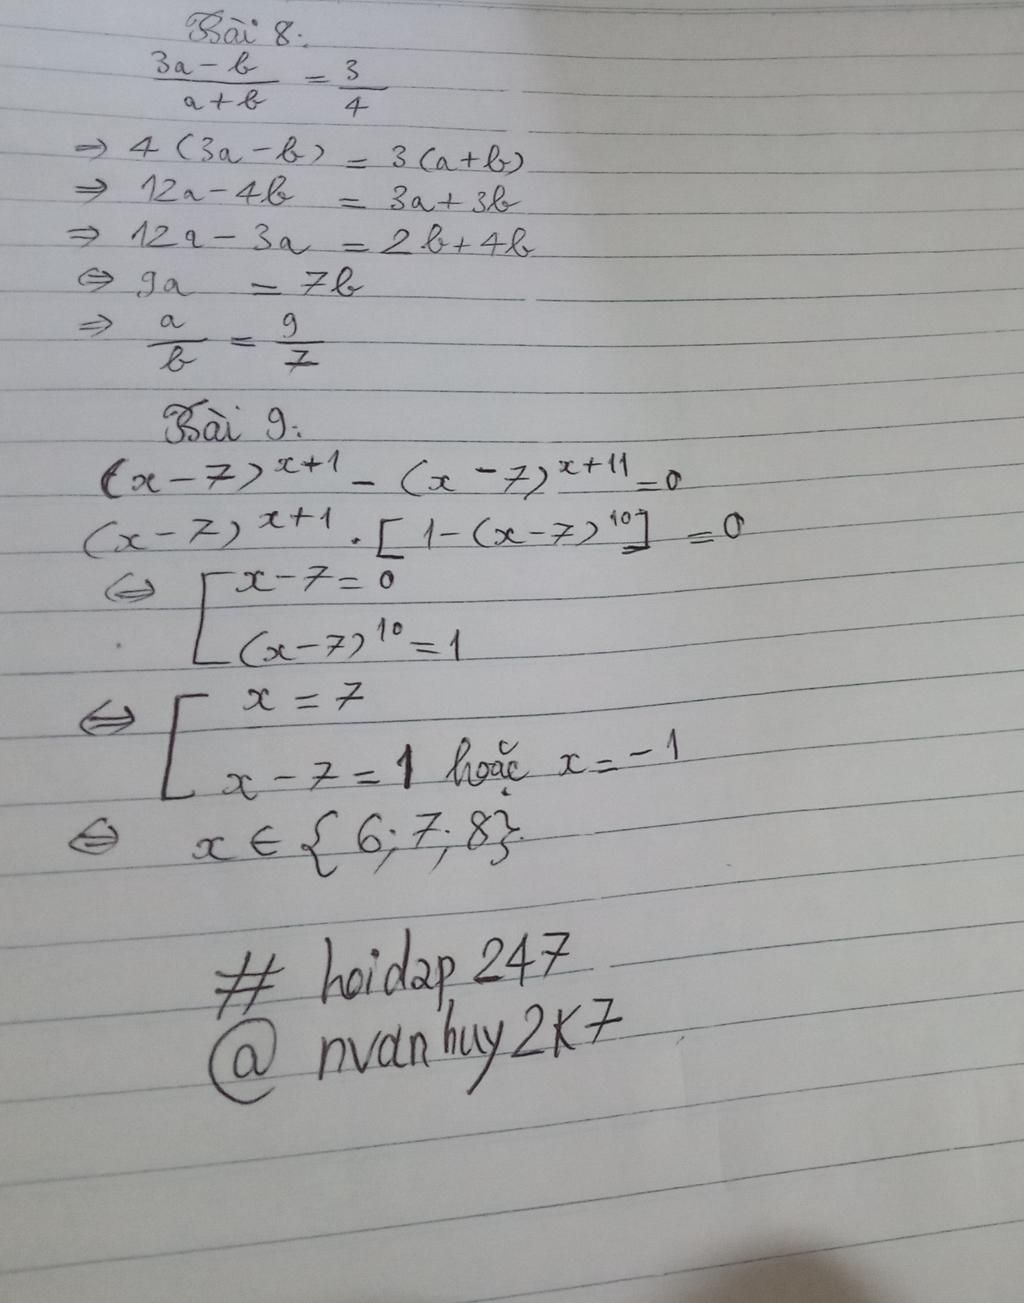 Bài 8:
3a - b / a + b = 3 / 4
=> 4 (3a - b) = 3 (a + b)
=> 12a - 4b = 3a + 3b
=> 12a - 3a = 2b + 4b
<=> 9a = 7b
=> a / b = 9 / 7
Bài 9:
(x - 7)^x+1 - (x - 7)^x+11 = 0
(x - 7)^x+1 . [1 - (x - 7)^10] = 0
<=> [ x - 7 = 0
(x - 7)^10 = 1
<=> [ x = 7
x - 7 = 1 hoặc x = -1
<=> x ∈ {6; 7; 8}
# hoidap 247
@ nvanhuy2K7